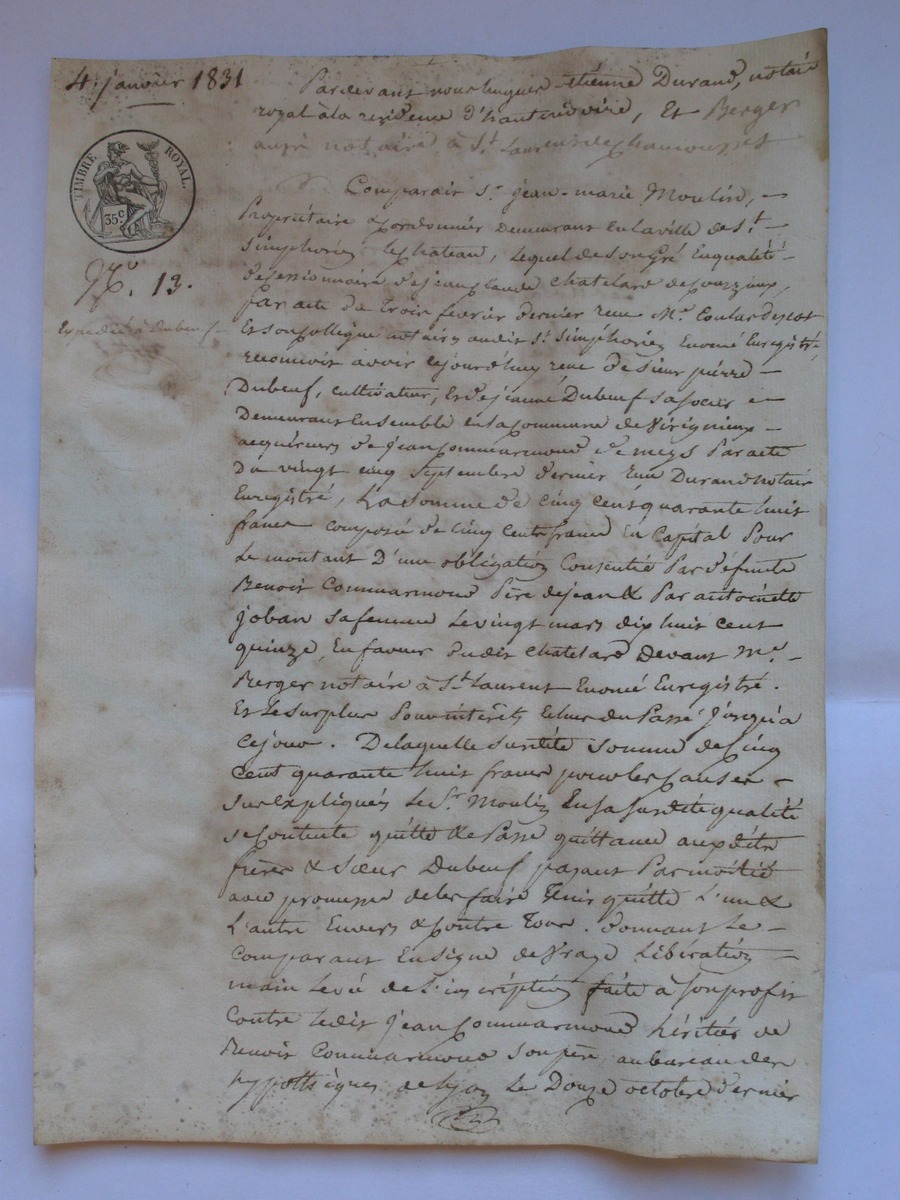 4 janvier 1831
TIMBRE ROYAL.
35 c
N.o 13.
Expédié à Dubeuf
Pardevant nous hugues étienne Durand, notaire
royal à la residence d'hauterivoire, Et Berger
aussi notaire à St. Laurent de chamousset
Comparait Sr. jean-marie Moulin, -
Propriétaire & cordonnier Demeurant En la ville de St. -
Simphorien le chateau, lequel de son Gré En qualité -
de cessionnaire de jean claude chatelard de courzieux,
Par acte du Trois février dernier reçu Me. Coulard
Et son collègue notaires audit St. Simphorien Enoncé Enregistré,
reconnoit avoir cejourd'huy reçu de Sieur pierre -
Dubeuf, cultivateur, Et de jeanne Dubeuf sa soeur -
Demeurant Ensemble en la commune de Virignieux -
acquéreurs de jean Commarmond de meys Par acte
Du vingt cinq Septembre dernier reçu Durand notaire
Enregistré, La Somme de cinq cent quarante huit
francs composée de cinq cents francs En Capital Pour
Le montant D'une obligation Consentie Par défunts
Benoit Commarmond Père de jean & Par antoinette
joban sa femme le vingt mars dix huit cent
quinze, En faveur dudit chatelard devant Me. -
Berger notaire à St. Laurent Enoncé Enregistré.
Et le surplus Pour intérêts Echus du Passé jusqu'à
ce jour. De laquelle susdite Somme de Cinq
cent quarante huit francs pour les causes -
Sus expliqués le Sr. Moulin En sa susdite qualité
se contente quitte & Passe quittance auxdits
frère & Soeur Dubeuf payant Par moitié
avec promesse de les faire Tenir quitte L'un &
L'autre Envers & Contre Tous. donnant le -
Comparant En signe de Vraye Libération -
main Levée de L'inscription faite à son profit
contre ledit jean Commarmond héritier de
Benoit Commarmond son père, au bureau des
hypothèques de Lyon le Douze octobre dernier